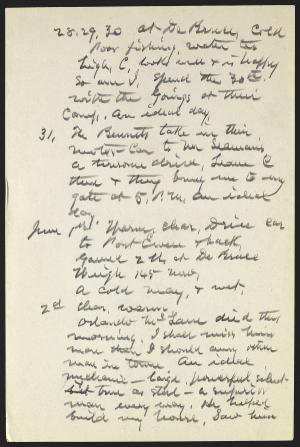 28, 29, 30 at De Bruce, Cold
Poor fishing, water too
high, C. looks well & is happy
So am I, Spend the 30th
with the Goings at their
Camp. An ideal day.
31, The Bennetts take in their
motor-Car to Mr
a tiresome drive, Leave C
there & they bring me to my
gate at 5 P.M. An ideal
day.
June 1st Warm, clear, Drive car
to Port Ewen & back,
Gained 2 lb at De Bruce
Weigh 145 now,
A cold May, & wet,
2d clear, warm,
Orlando Mc Lane died this
morning, I shall miss him
more than I should any other
man in town. An ideal
mechanic – large, powerful, silent
true as steel – a superior
man every way. He helped
build my house, Saw him